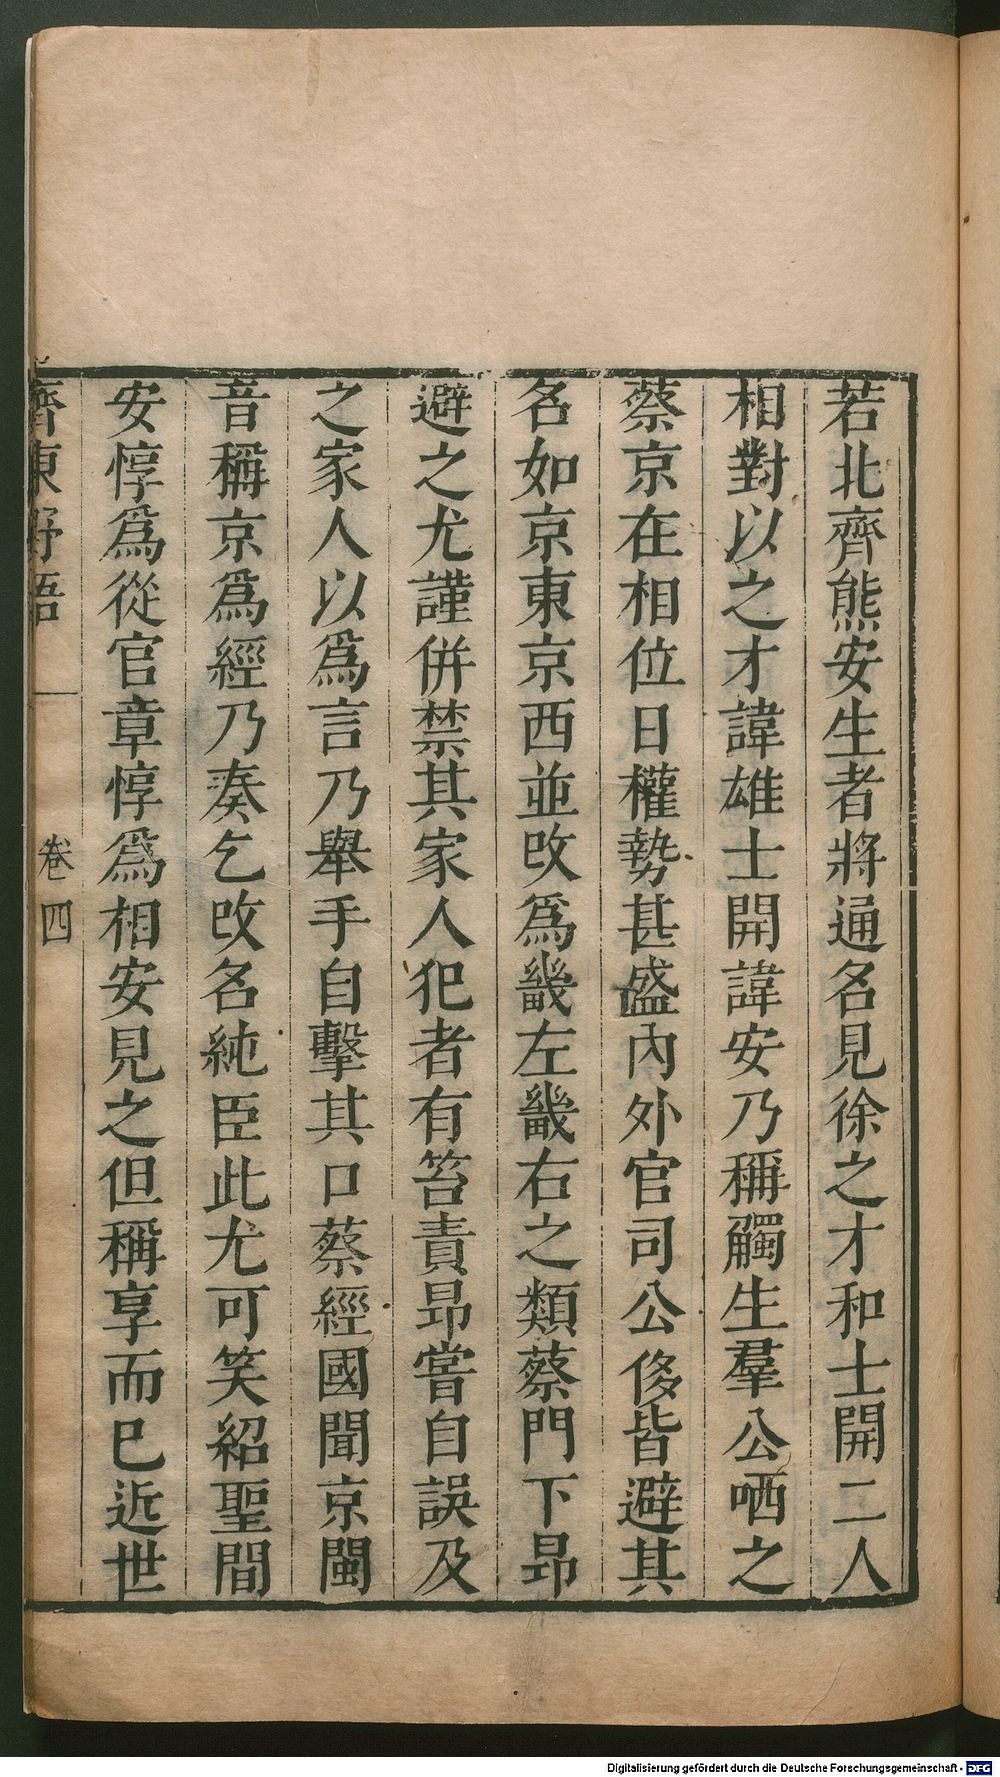 若北齊熊安生者將通名見徐之才和士開二人
相對以之才諱雄士開諱安乃稱觸生羣公哂之
蔡京在相位日權勢甚盛內外官司公侈皆避其
名如京東京西並攺爲畿左畿右之類蔡門下昻
避之尤謹併禁其家人犯者有笞責昻嘗自誤及
之家人以爲言乃舉手自擊其口蔡經國聞京閩
音稱京爲經乃奏乞攺名純臣此尤可笑紹聖間
安惇爲從官章惇爲相安見之但稱享而巳近世
齊東野語 卷四
Digitalisierung gefördert durch die Deutsche Forschungsgemeinschaft - DFG